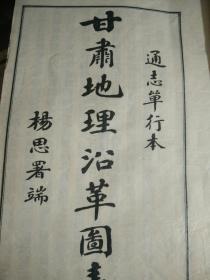 通志單行本
甘肅地理沿革圖表
楊思署端